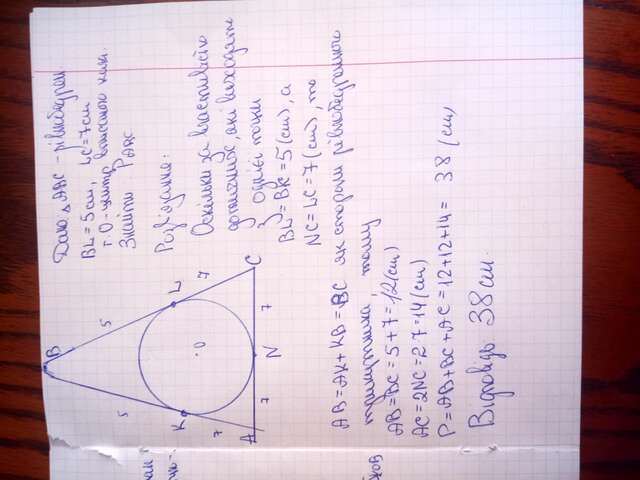 Дано: △ ABC - рівнобедрен
BL = 5 см, LC = 7 см
т. O - центр вписаного кола.
Знайти P ABC
Розв'язання:
Оскільки за властивістю
дотичних, які виходять
з однієї точки
BL = BK = 5 (см), а
NC = LC = 7 (см), то
B
5
5
K
L
O
7
7
A
7
N
7
C
AB = AK + KB = BC як сторони рівнобедреного
трикутника, тому
AB = BC = 5 + 7 = 12 (см)
AC = 2NC = 2·7 = 14 (см)
P = AB + BC + AC = 12 + 12 + 14 = 38 (см)
Відповідь 38 см.
ків